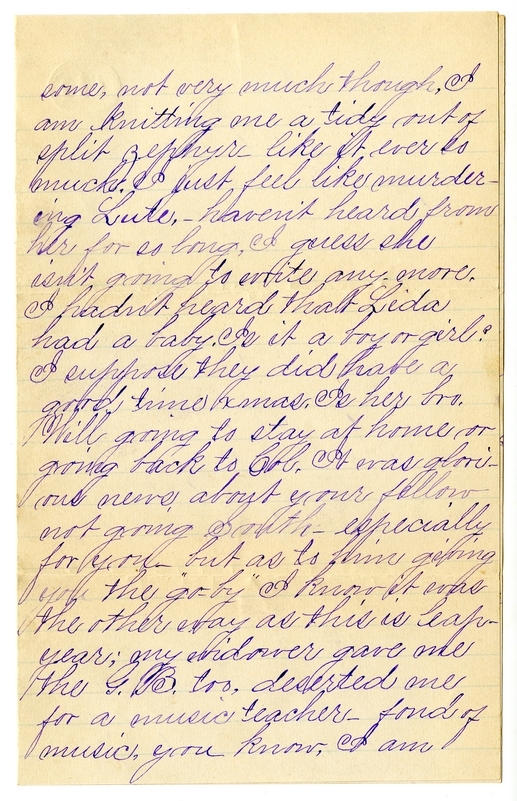 some, not very much though. I
am knitting me a tidy out of
split zephyr - like it ever so
much. I just feel like murder-
ing Lute, - haven't heard from
her for so long, I guess she
isn't going to write any more.
I hadn't heard that Lida
had a baby. Is it a boy or girl?
I suppose they did have a
good time Xmas. Is her bro.
Will going to stay at home or
going back to Col. It was glori-
ous news, about your fellow
not going South - especially
for you - but as to him giving
you the "go-by" I know it was
the other way as this is leap-
year; my widower gave me
the G. B. too, deserted me
for a music teacher - fond of
music, you know. I am